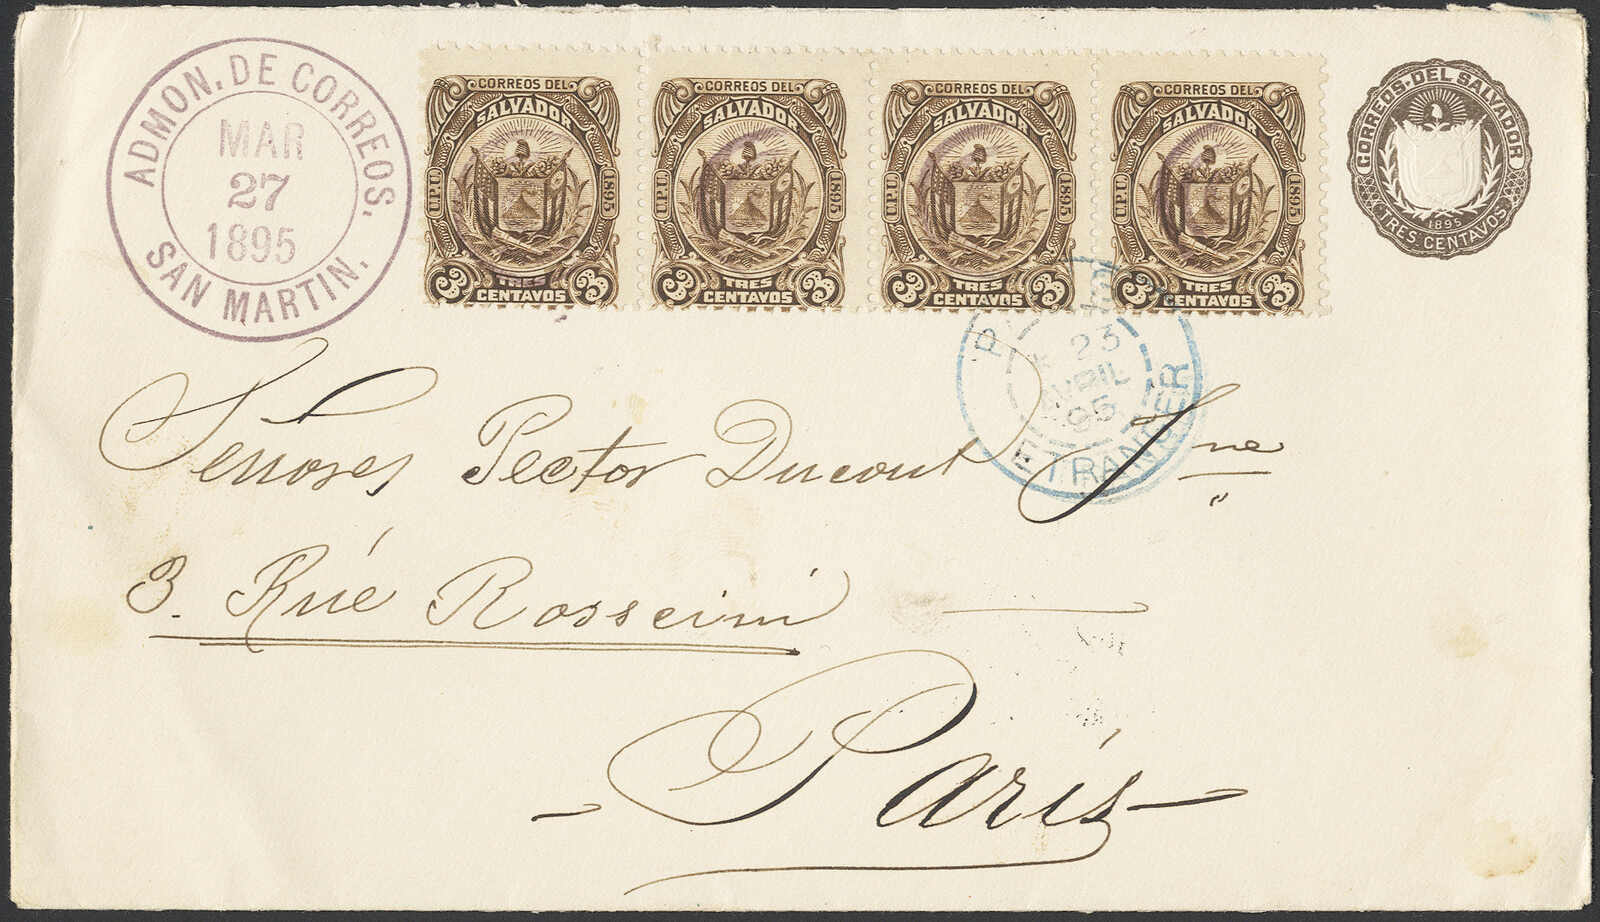 ADMON. DE CORREOS.
MAR
27
1895
SAN MARTIN.
CORREOS DEL
SALVADOR
U.P.U.
1895
3 TRES 3
CENTAVOS
CORREOS DEL
SALVADOR
U.P.U.
1895
3 TRES 3
CENTAVOS
CORREOS DEL
SALVADOR
U.P.U.
1895
3 TRES 3
CENTAVOS
CORREOS DEL
SALVADOR
U.P.U.
1895
3 TRES 3
CENTAVOS
CORREOS DEL SALVADOR
1895
TRES CENTAVOS
23
AVRIL
95
ETRANGER
Señores Pector Ducout Jne
3. Rué Rosseini
Paris